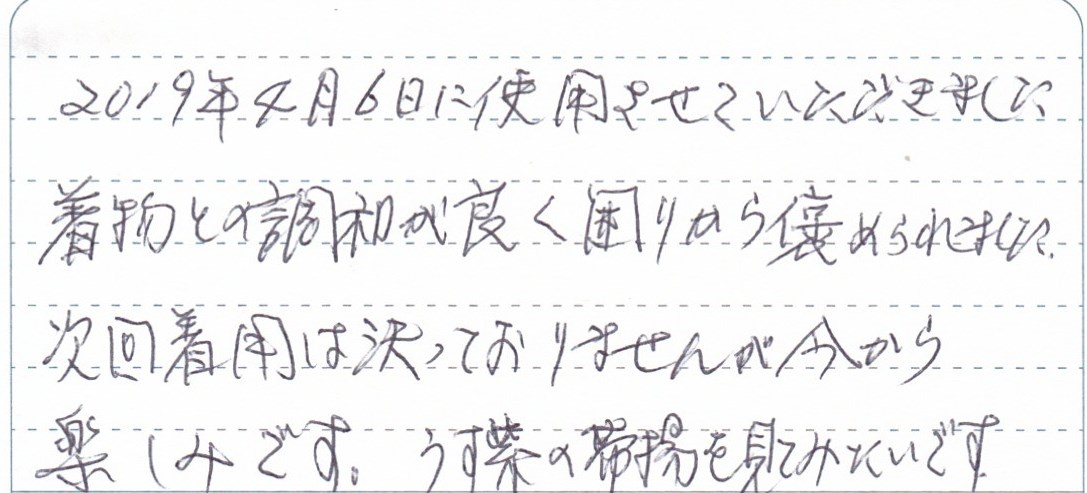 2019年4月6日に使用させていただきました
着物との調和が良く困りから褒められました。
次回着用は決っておりませんが今から
楽しみです。うす紫の帯揚を見てみたいです